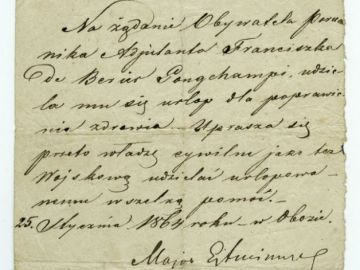 Na żądanie Obywatela Porucz
nika Adjutanta Franciszka
de Berier Longchamps, udzie
la mu się urlop dla poprawie
nia zdrowia. Uprasza się
przeto władzę cywilną jako też
Wojskową udzielać urlopowa
nemu wszelką pomoc. —
25. Stycznia 1864 roku — w Obozie.
Major